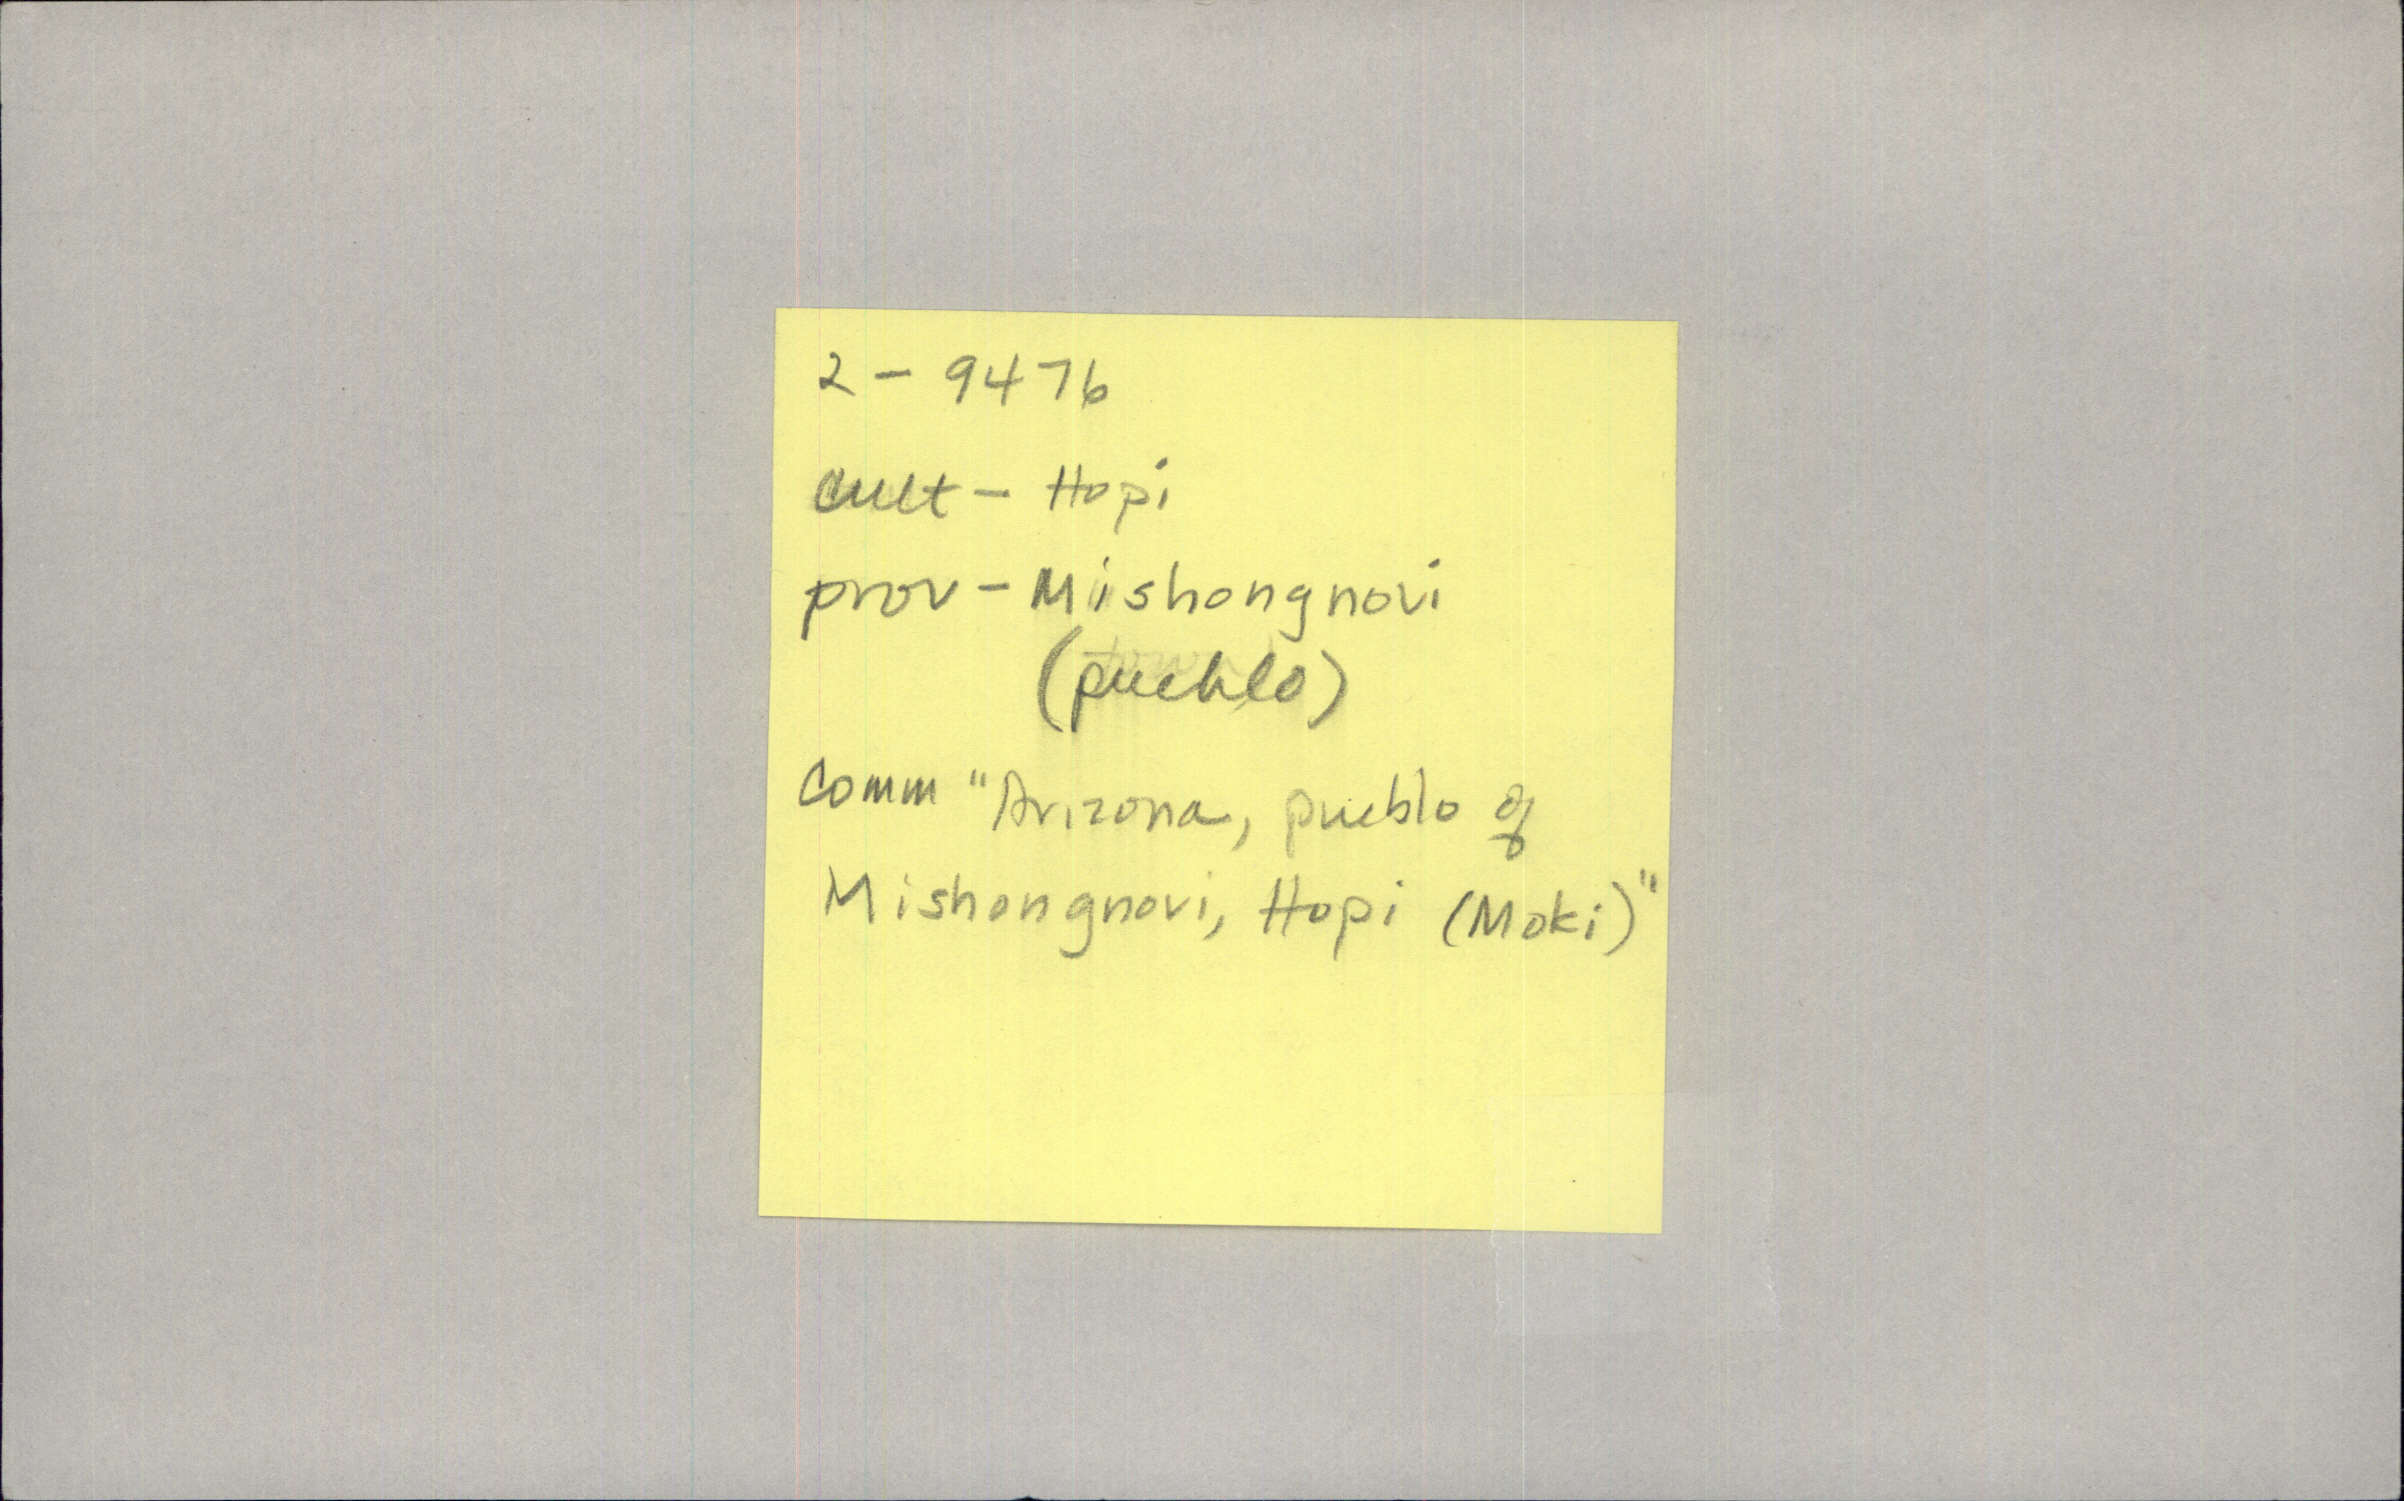 2 - 9476
Cult - Hopi
prov - Mishongnovi
(pueblo)
Comm "Arizona, pueblo of
Mishongnovi, Hopi (Moki)"